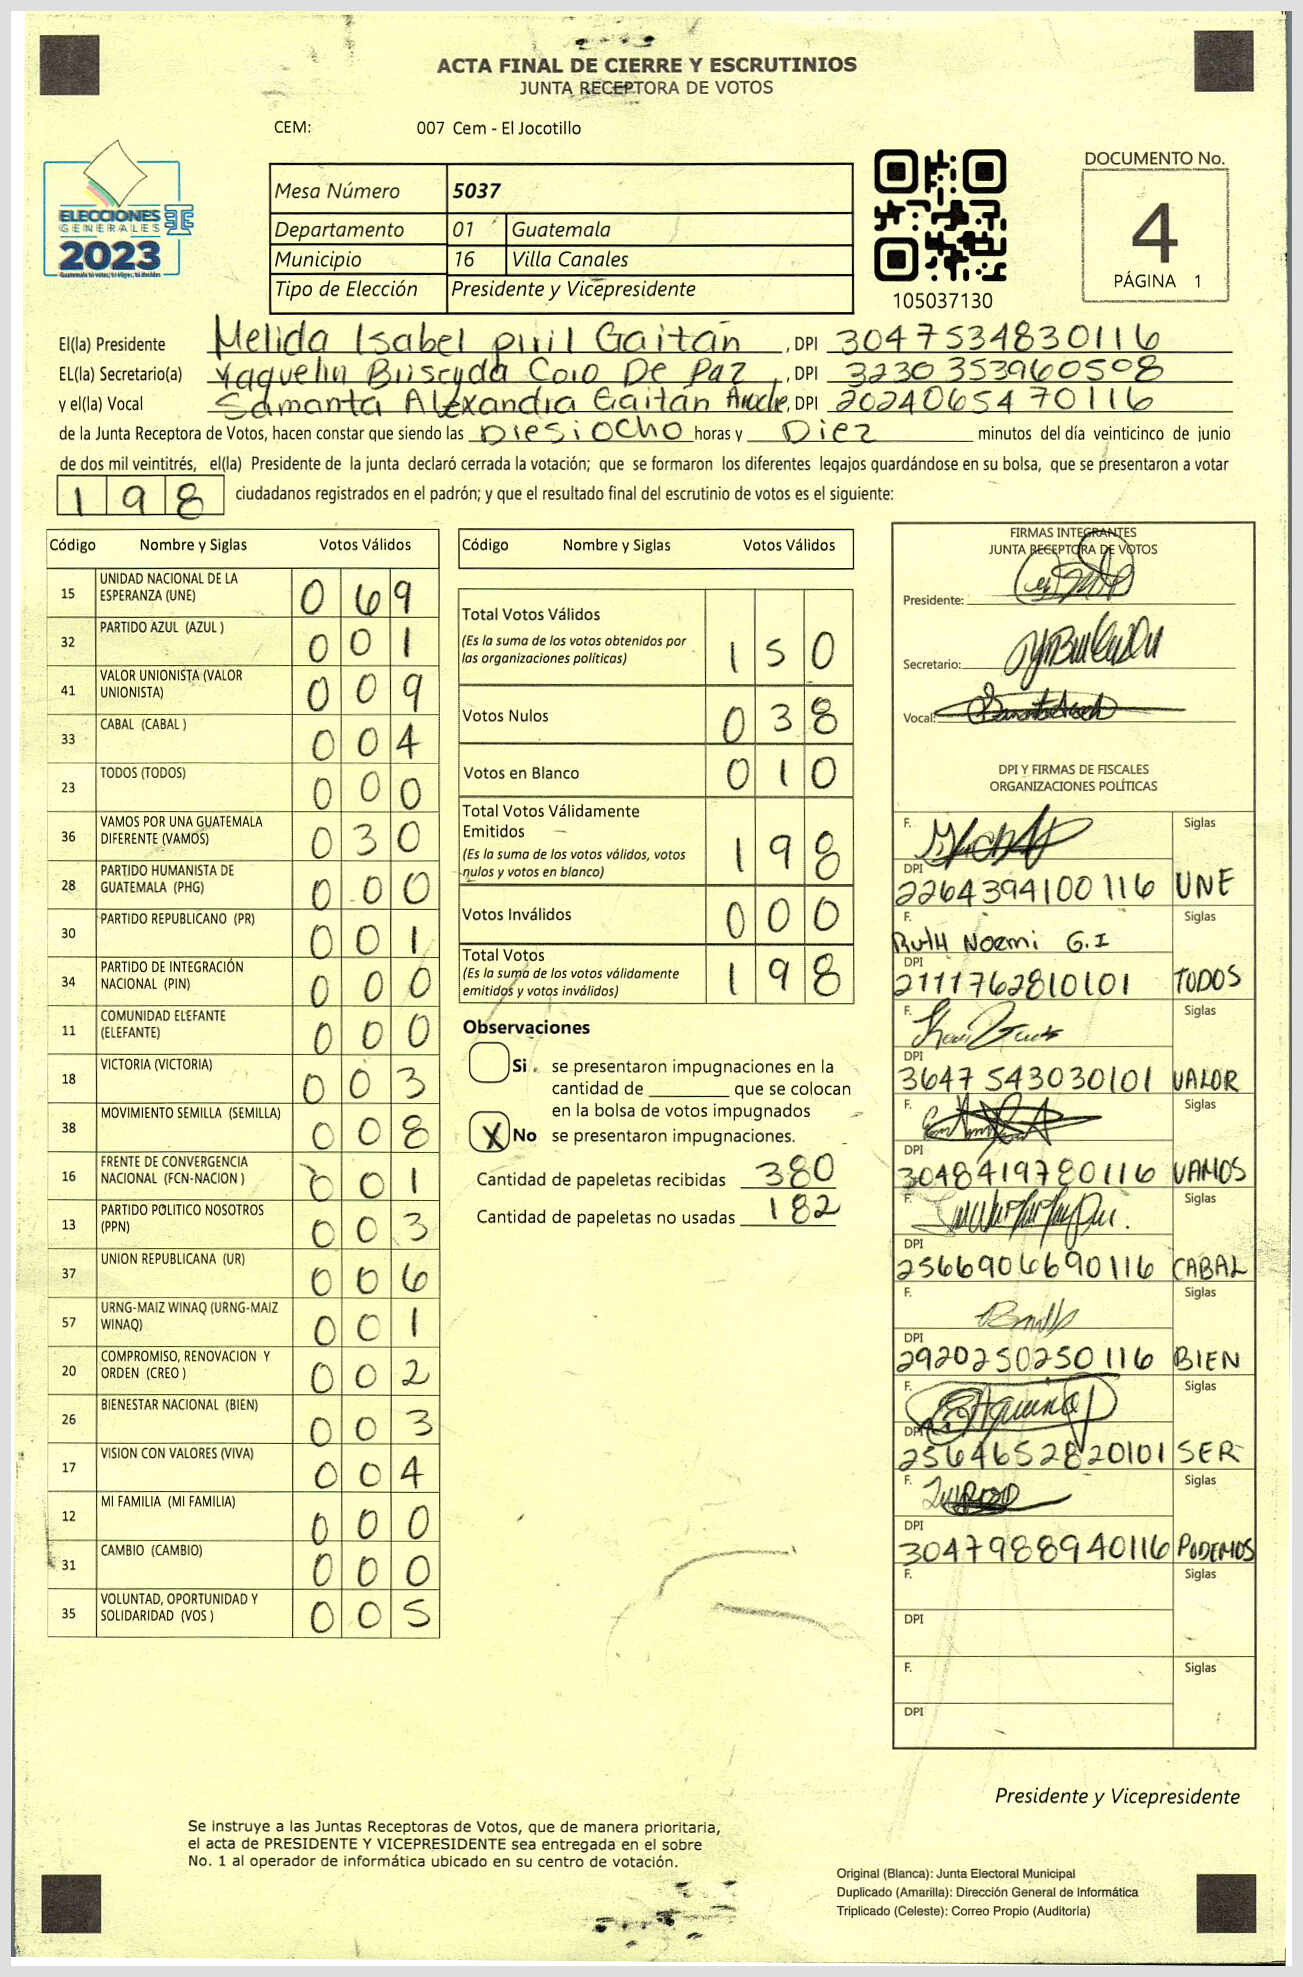 ACTA FINAL DE CIERRE Y ESCRUTINIOS
JUNTA RECEPTORA DE VOTOS
CEM: 007 Cem - El Jocotillo
ELECCIONES
GENERALES
2023
Mesa Número 5037
Departamento 01 Guatemala
Municipio 16 Villa Canales
Tipo de Elección Presidente y Vicepresidente
105037130
DOCUMENTO No.
4
PÁGINA 1
El(la) Presidente Melida Isabel Gaitán, DPI 3047534830116
EL(la) Secretario(a) De Paz, DPI 3230353960508
y el(la) Vocal Samanta Alexandra Gaitán, DPI 2024065470116
de la Junta Receptora de Votos, hacen constar que siendo las Diesiocho horas y Diez minutos del día veinticinco de junio
de dos mil veintitrés, el(la) Presidente de la junta declaró cerrada la votación; que se formaron los diferentes legajos guardándose en su bolsa, que se presentaron a votar
198 ciudadanos registrados en el padrón; y que el resultado final del escrutinio de votos es el siguiente:
Código Nombre y Siglas Votos Válidos
15 UNIDAD NACIONAL DE LA ESPERANZA (UNE) 069
32 PARTIDO AZUL (AZUL ) 001
41 VALOR UNIONISTA (VALOR UNIONISTA) 009
33 CABAL (CABAL ) 004
23 TODOS (TODOS) 000
36 VAMOS POR UNA GUATEMALA DIFERENTE (VAMOS) 030
28 PARTIDO HUMANISTA DE GUATEMALA (PHG) 000
30 PARTIDO REPUBLICANO (PR) 001
34 PARTIDO DE INTEGRACIÓN NACIONAL (PIN) 000
11 COMUNIDAD ELEFANTE (ELEFANTE) 000
18 VICTORIA (VICTORIA) 003
38 MOVIMIENTO SEMILLA (SEMILLA) 008
16 FRENTE DE CONVERGENCIA NACIONAL (FCN-NACION ) 001
13 PARTIDO POLITICO NOSOTROS (PPN) 003
37 UNION REPUBLICANA (UR) 006
57 URNG-MAIZ WINAQ (URNG-MAIZ WINAQ) 001
20 COMPROMISO, RENOVACION Y ORDEN (CREO ) 002
26 BIENESTAR NACIONAL (BIEN) 003
17 VISION CON VALORES (VIVA) 004
12 MI FAMILIA (MI FAMILIA) 000
31 CAMBIO (CAMBIO) 000
35 VOLUNTAD, OPORTUNIDAD Y SOLIDARIDAD (VOS ) 005
Código Nombre y Siglas Votos Válidos
Total Votos Válidos 150
(Es la suma de los votos obtenidos por
las organizaciones políticas)
Votos Nulos 038
Votos en Blanco 010
Total Votos Válidamente
Emitidos 198
(Es la suma de los votos válidos, votos
nulos y votos en blanco)
Votos Inválidos 000
Total Votos 198
(Es la suma de los votos válidamente
emitidos y votos inválidos)
Observaciones
Si se presentaron impugnaciones en la
cantidad de ______ que se colocan
en la bolsa de votos impugnados
X No se presentaron impugnaciones.
Cantidad de papeletas recibidas 380
Cantidad de papeletas no usadas 182
FIRMAS INTEGRANTES
JUNTA RECEPTORA DE VOTOS
Presidente:
Secretario:
Vocal:
DPI Y FIRMAS DE FISCALES
ORGANIZACIONES POLÍTICAS
F. Siglas
DPI
2264394100116 UNE
F. Siglas
Ruth Noemi G.I
DPI
2111762810101 TODOS
F. Siglas
DPI
3647543030101 VALOR
F. Siglas
DPI
3048419780116 VAMOS
F. Siglas
DPI
2566906690116 CABAL
F. Siglas
DPI
2920250250116 BIEN
F. Siglas
DPI
2564652820101 SER
F. Siglas
DPI
3047988940116 PODEMOS
F. Siglas
DPI
F. Siglas
DPI
Presidente y Vicepresidente
Se instruye a las Juntas Receptoras de Votos, que de manera prioritaria,
el acta de PRESIDENTE Y VICEPRESIDENTE sea entregada en el sobre
No. 1 al operador de informática ubicado en su centro de votación.
Original (Blanca): Junta Electoral Municipal
Duplicado (Amarilla): Dirección General de Informática
Triplicado (Celeste): Correo Propio (Auditoría)